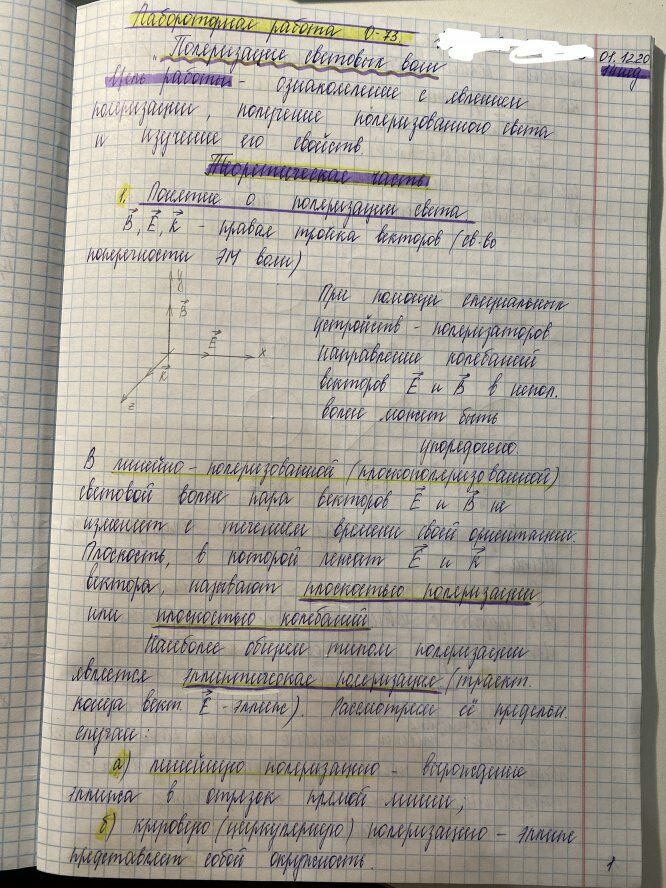 Лабораторная работа О-73
"Поляризация световых волн
01.12.20
Цель работы - ознакомление с явлением
поляризации, получение поляризованного света
и изучение его свойств
Теоретическая часть
1. Понятие о поляризации света
B, E, K - правая тройка векторов (св-во
поперечности ЭМ волн)
y
B
E
x
K
z
При помощи специальных
устройств - поляризаторов
направление колебаний
векторов E и B в непол.
волне может быть
упорядочено.
В линейно-поляризованной (плоскополяризованной)
световой волне пара векторов E и B не
изменяет с течением времени своей ориентации.
Плоскость, в которой лежат E и K
вектора, называют плоскостью поляризации,
или плоскостью колебаний
Наиболее общим типом поляризации
является эллиптическая поляризация (траект.
конца вект. E - эллипс). Рассмотрим её предельн.
случаи:
а) линейную поляризацию - вырождение
эллипса в отрезок прямой линии;
б) круговую (циркулярную) поляризацию - эллипс
представляет собой окружность.
1